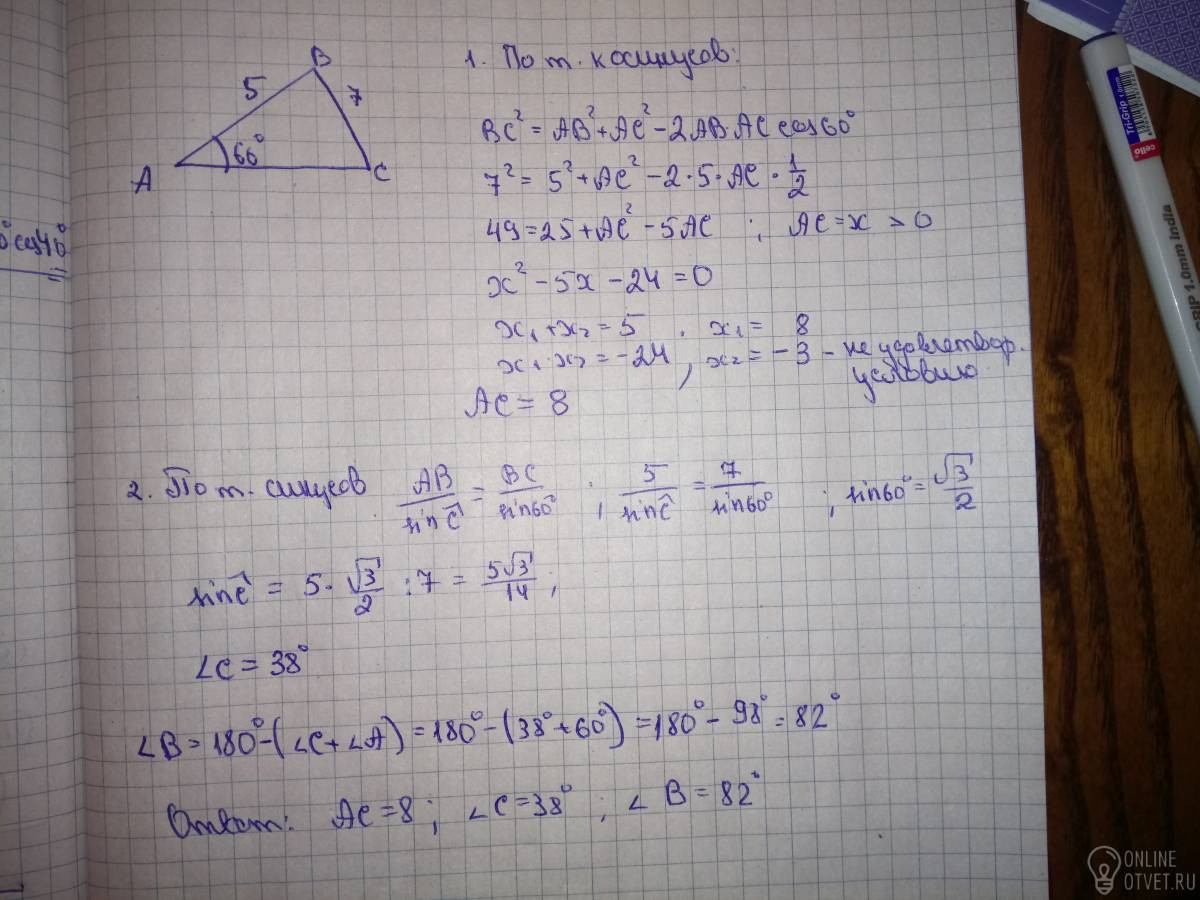 B
5
7
60°
A
C
1. По т. косинусов:
BC² = AB² + AC² - 2AB·AC cos60°
7² = 5² + AC² - 2·5·AC·1/2
49 = 25 + AC² - 5AC ; AC = x > 0
x² - 5x - 24 = 0
x₁ + x₂ = 5 , x₁ = 8
x₁·x₂ = -24 , x₂ = -3 - не удовлетвор.
условию
AC = 8
2. По т. синусов AB/sinC = BC/sin60° ; 5/sinC = 7/sin60° ; sin60° = √3/2
sinC = 5·√3/2 : 7 = 5√3/14 ;
∠C = 38°
∠B = 180° - (∠C + ∠A) = 180° - (38° + 60°) = 180° - 98° = 82°
Ответ: AC = 8 ; ∠C = 38° ; ∠B = 82°
cos40°
Tri-Grip 1.0mm
cello
RIP 1.0mm India
ONLINE
OTVET.RU